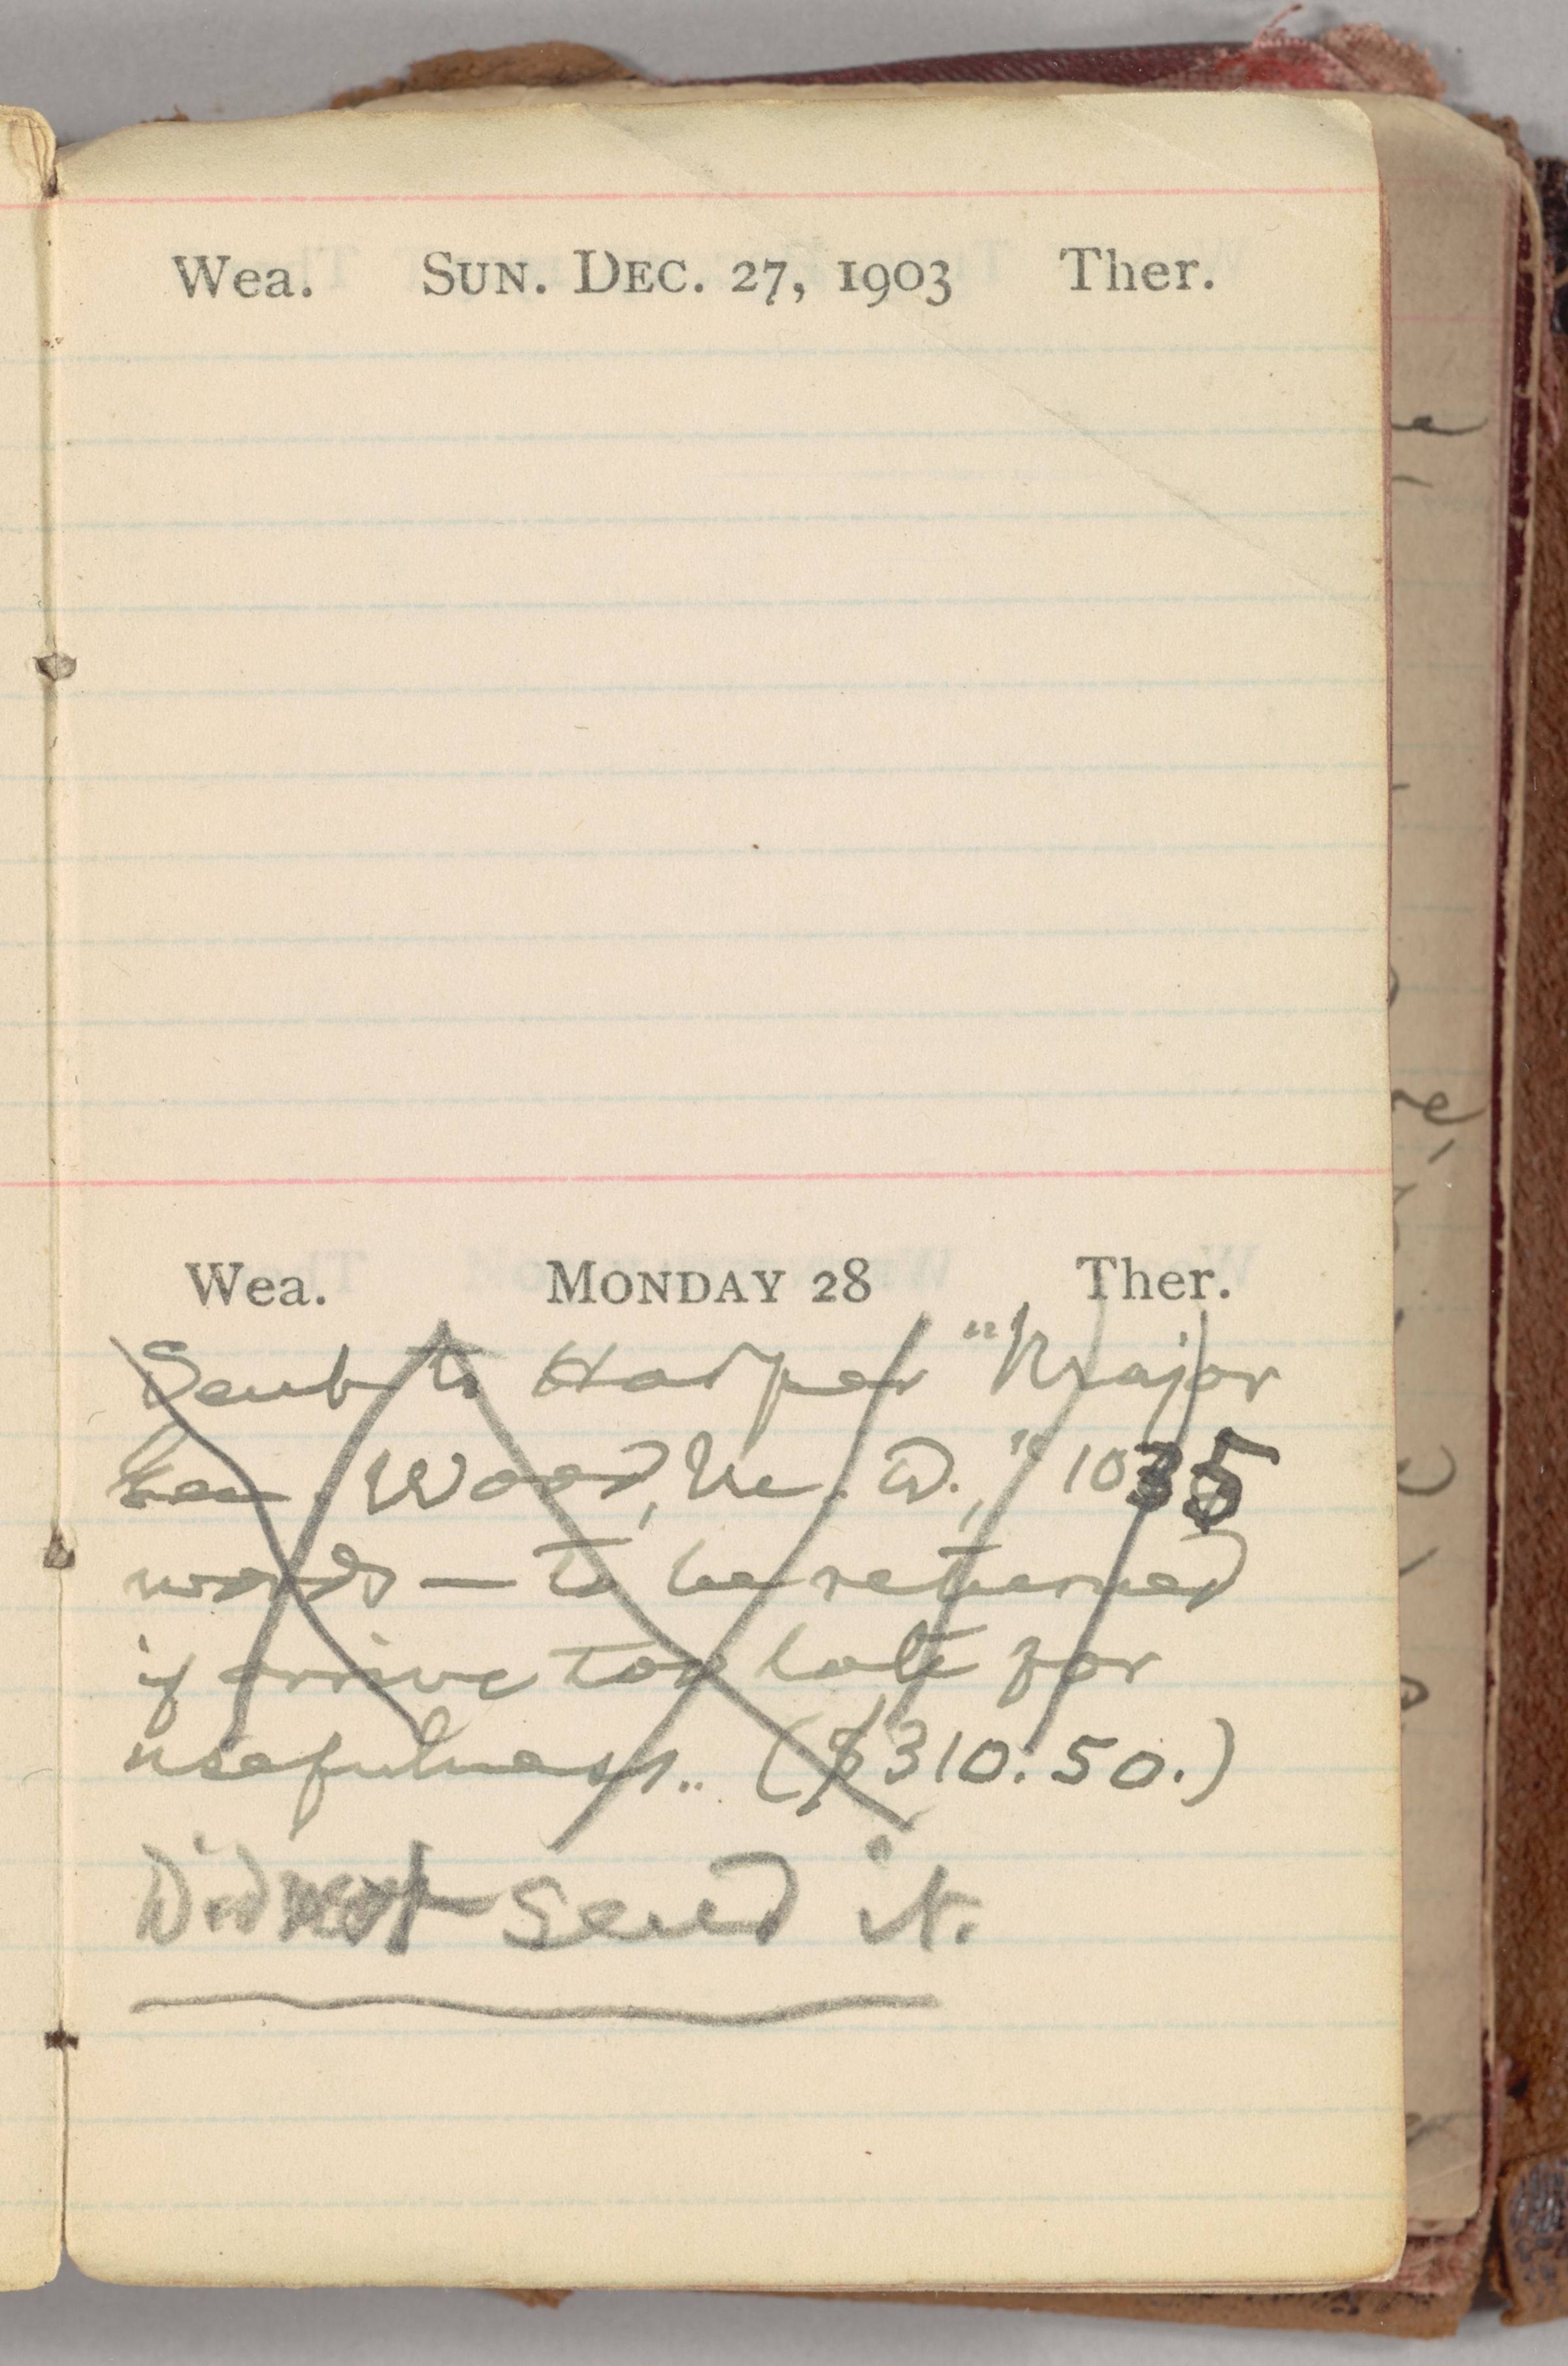 Wea. SUN. DEC. 27, 1903 Ther.
Sent to Harper "Major
Gen. Wood, M. D.," 1035
words — to be returned
if arrive too late for
usefulness.. ($310.50.)
Did not send it.